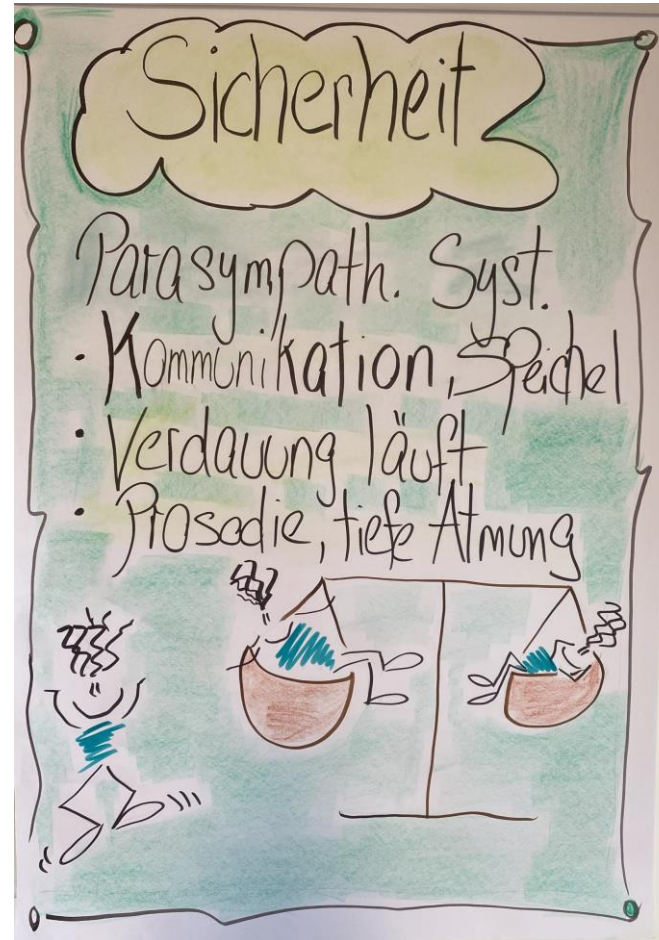 Sicherheit
Parasympath. Syst.
· Kommunikation, Speichel
· Verdauung läuft
· Prosodie, tiefe Atmung